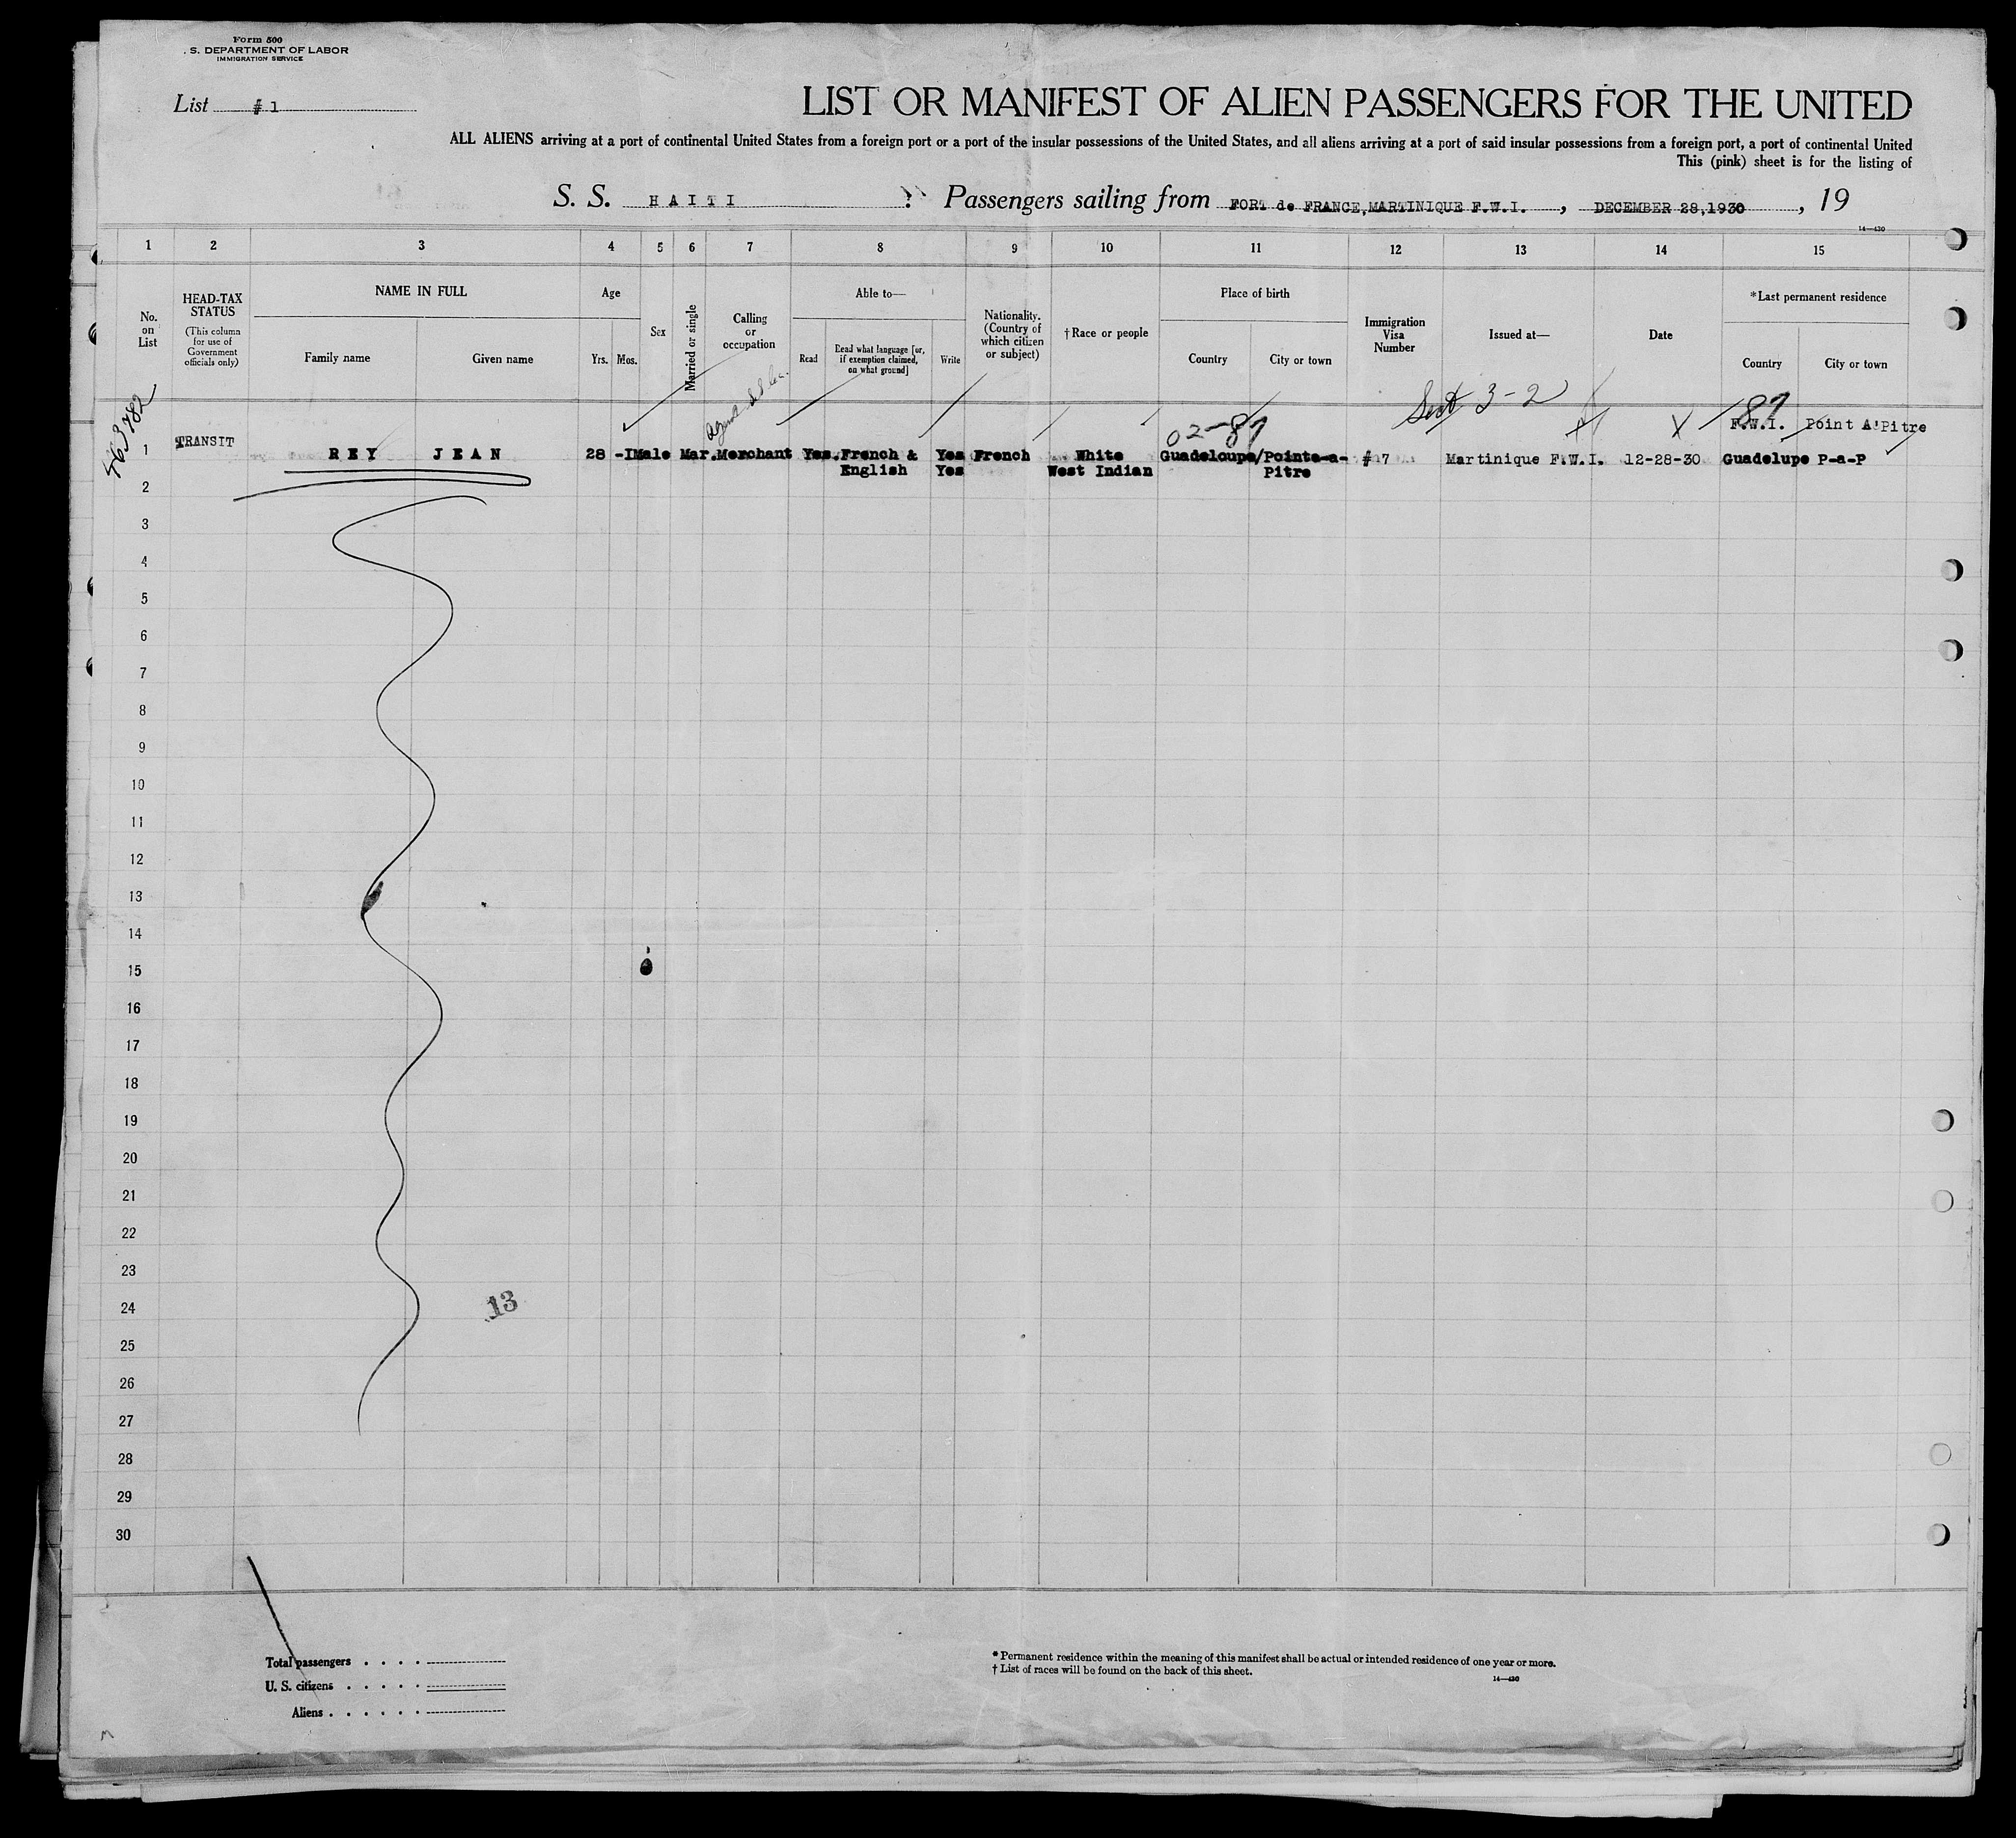 Form 500
. S. DEPARTMENT OF LABOR
IMMIGRATION SERVICE
List #1
LIST OR MANIFEST OF ALIEN PASSENGERS FOR THE UNITED
ALL ALIENS arriving at a port of continental United States from a foreign port or a port of the insular possessions of the United States, and all aliens arriving at a port of said insular possessions from a foreign port, a port of continental United
This (pink) sheet is for the listing of
S. S. HAITI Passengers sailing from FORT de FRANCE,MARTINIQUE F.W.I. , DECEMBER 28,1930 , 19
14—430
1 2 3 4 5 6 7 8 9 10 11 12 13 14 15
No. on List
HEAD-TAX STATUS
(This column for use of Government officials only)
NAME IN FULL
Family name Given name
Age
Yrs. Mos.
Sex
Married or single
Calling or occupation
Able to—
Read
Read what language [or, if exemption claimed, on what ground]
Write
Nationality. (Country of which citizen or subject)
†Race or people
Place of birth
Country City or town
Immigration Visa Number
Issued at—
Date
*Last permanent residence
Country City or town
563782
Sect 3-2
02-87
87
F.W.I. Point A'Pitre
1 TRANSIT REY JEAN 28 -IMale Mar.Merchant Yes.French & Yes French White Guadeloupe/Pointe-a- #7 Martinique F.W.I. 12-28-30 Guadelupe P-a-P
English Yes West Indian Pitre
2
3
4
5
6
7
8
9
10
11
12
13
14
15
16
17
18
19
20
21
22
23
24
13
25
26
27
28
29
30
Total passengers . . . .
U. S. citizens . . . . .
Aliens . . . . . .
* Permanent residence within the meaning of this manifest shall be actual or intended residence of one year or more.
† List of races will be found on the back of this sheet.
14—430